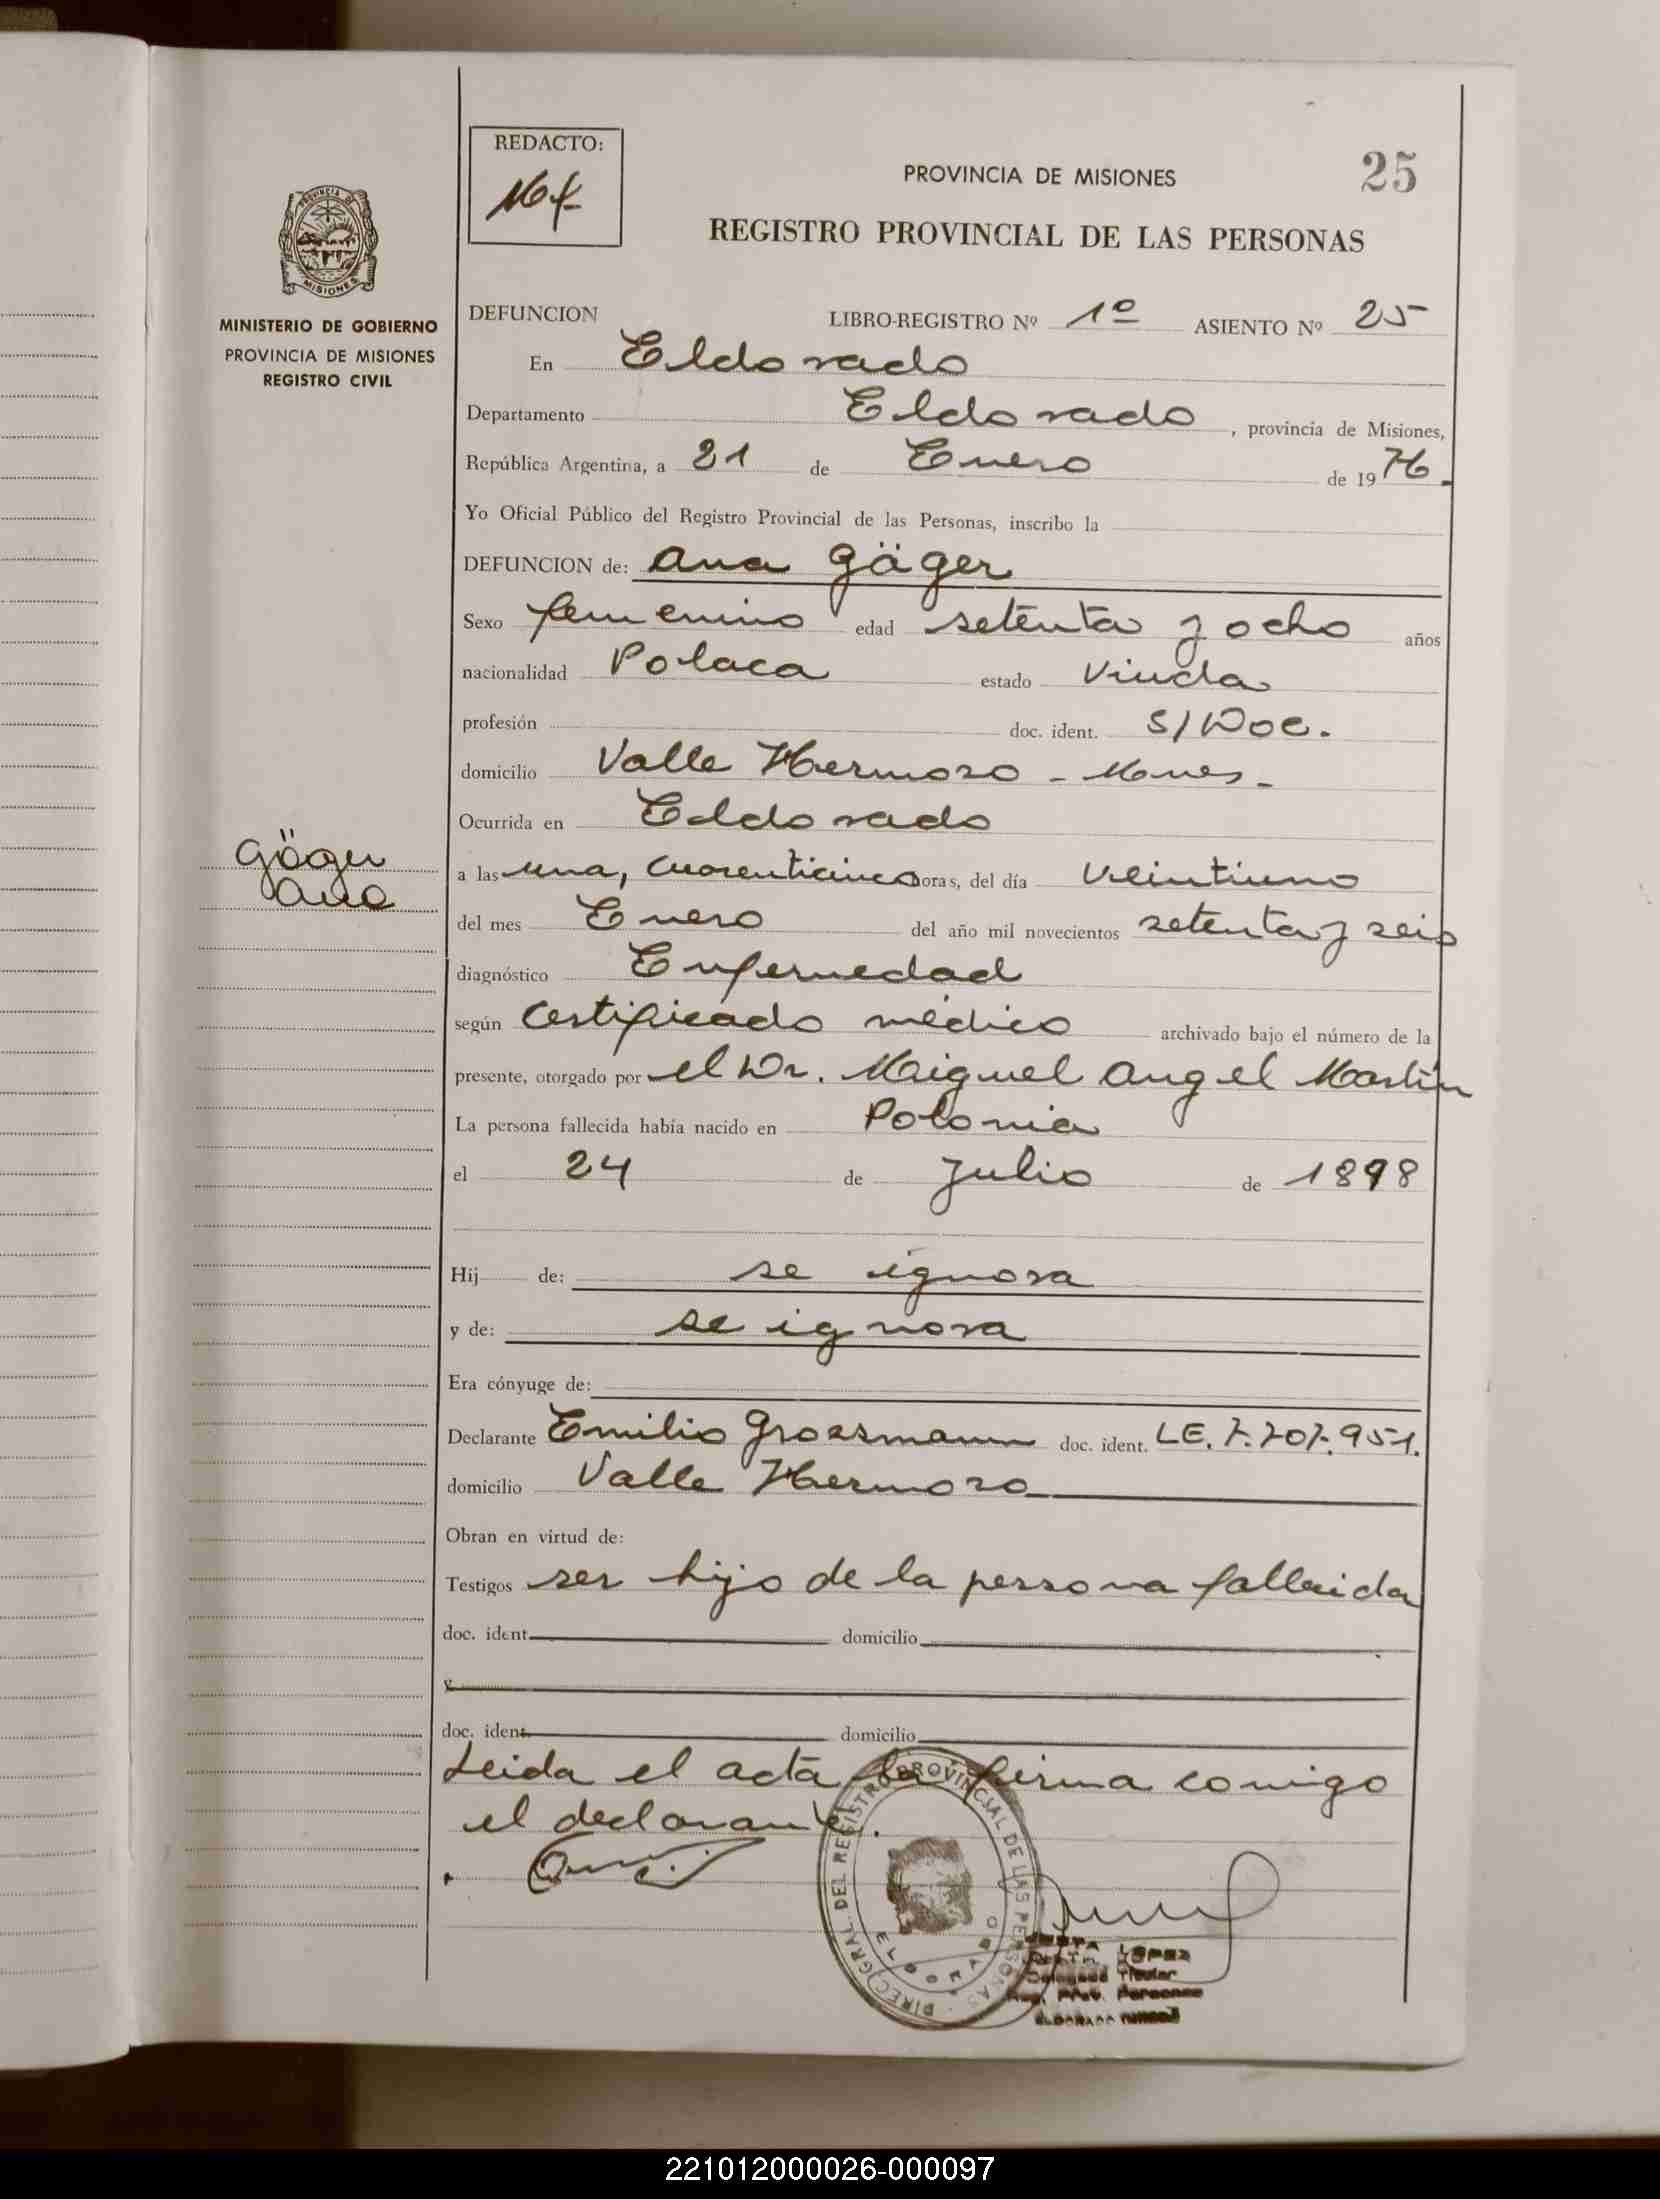 REDACTO:
PROVINCIA DE MISIONES
25
REGISTRO PROVINCIAL DE LAS PERSONAS
PROVINCIA DE
MISIONES
MINISTERIO DE GOBIERNO
PROVINCIA DE MISIONES
REGISTRO CIVIL
DEFUNCION LIBRO-REGISTRO Nº 1º ASIENTO Nº 25
En Eldorado
Departamento Eldorado, provincia de Misiones,
República Argentina, a 21 de Enero de 1976.
Yo Oficial Público del Registro Provincial de las Personas, inscribo la
DEFUNCION de: Ana Gäger
Sexo femenino edad setenta y ocho años
nacionalidad Polaca estado Viuda
profesión doc. ident. S/Doc.
domicilio Valle Hermoso - Mnes -
Ocurrida en Eldorado
Gäger
Ana
a las una, cuarenticinco horas, del día veintiuno
del mes Enero del año mil novecientos setenta y seis
diagnóstico Enfermedad
según Certificado médico archivado bajo el número de la
presente, otorgado por el Dr. Miguel Angel Martín
La persona fallecida había nacido en Polonia
el 24 de Julio de 1898
Hij de: se ignora
y de: se ignora
Era cónyuge de:
Declarante Emilio Grossmann doc. ident. LE. 7.707.951.
domicilio Valle Hermoso
Obran en virtud de:
Testigos ser hijo de la persona fallecida
doc. ident. domicilio
y
doc. ident. domicilio
Leida el acta la firma conmigo
el declarante.
DIREC. GRAL. DEL REGISTRO PROVINCIAL DE LAS PERSONAS
ELDORADO
LOPEZ
Delegada Titular
Reg. Prov. Personas
ELDORADO
221012000026-000097